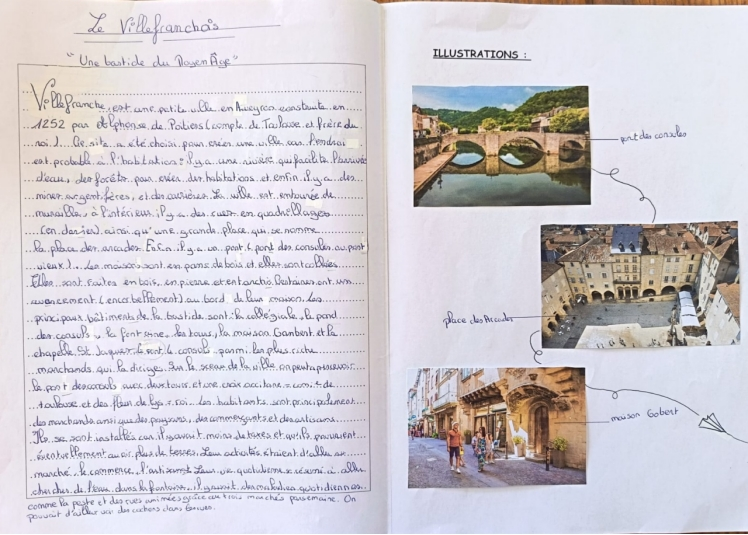 Le Villefranchois
"Une bastide du Moyen Âge"
Villefranche est une petite ville en Aveyron construite en
1252 par Alphonse de Poitiers (comte de Toulouse et frère du
roi). Ce site a été choisi pour créer une ville car l'endroit
est probable à l'habitation : il y a une rivière qui facilite l'arrivée
d'eau, des forêts pour créer des habitations et enfin il y a des
mines argentifères, et des carrières. La ville est entourée de
murailles, à l'intérieur il y a des rues en quadrillages
(en damier) ainsi qu'une grande place qui se nomme
la place des arcades. Enfin il y a un pont (pont des consoles ou pont
vieux). Les maisons sont en pans de bois et elles sont collées.
Elles sont faites en bois, en pierre et en torchis. Certaines ont un
avancement (encorbellement) au bord de leur maison. Les
principaux bâtiments de la bastide sont : la collégiale, le pond
des consuls, la fontaine, les tours, la maison Gambert et la
chapelle St Jaques. Ce sont 4 consuls parmi les plus riche
marchands qui la diriges. Sur le sceau de la ville on peut apercevoir
le pont des consuls avec deux tours et une croix occitane = comte de
toulouse et des fleur de lys = roi. Les habitants sont principalement
des marchands ainsi que des paysans, des commerçants et des artisans.
Ils se sont installés car il y avait moins de taxes et qu'ils pouvaient
éventuellement avoir plus de terres. Leur activités étaient d'aller au
marché, le commerce, l'artisanat. Leur vie quotidienne se résume à aller
chercher de l'eau dans la fontaine, il y avait des maladies quotidiennes
comme la peste et des rues animées grâce aux trois marchés par semaine. On
pouvait d'ailleur voir des cochons dans les rues.
ILLUSTRATIONS :
pont des consoles
place des Arcades
maison Gobert